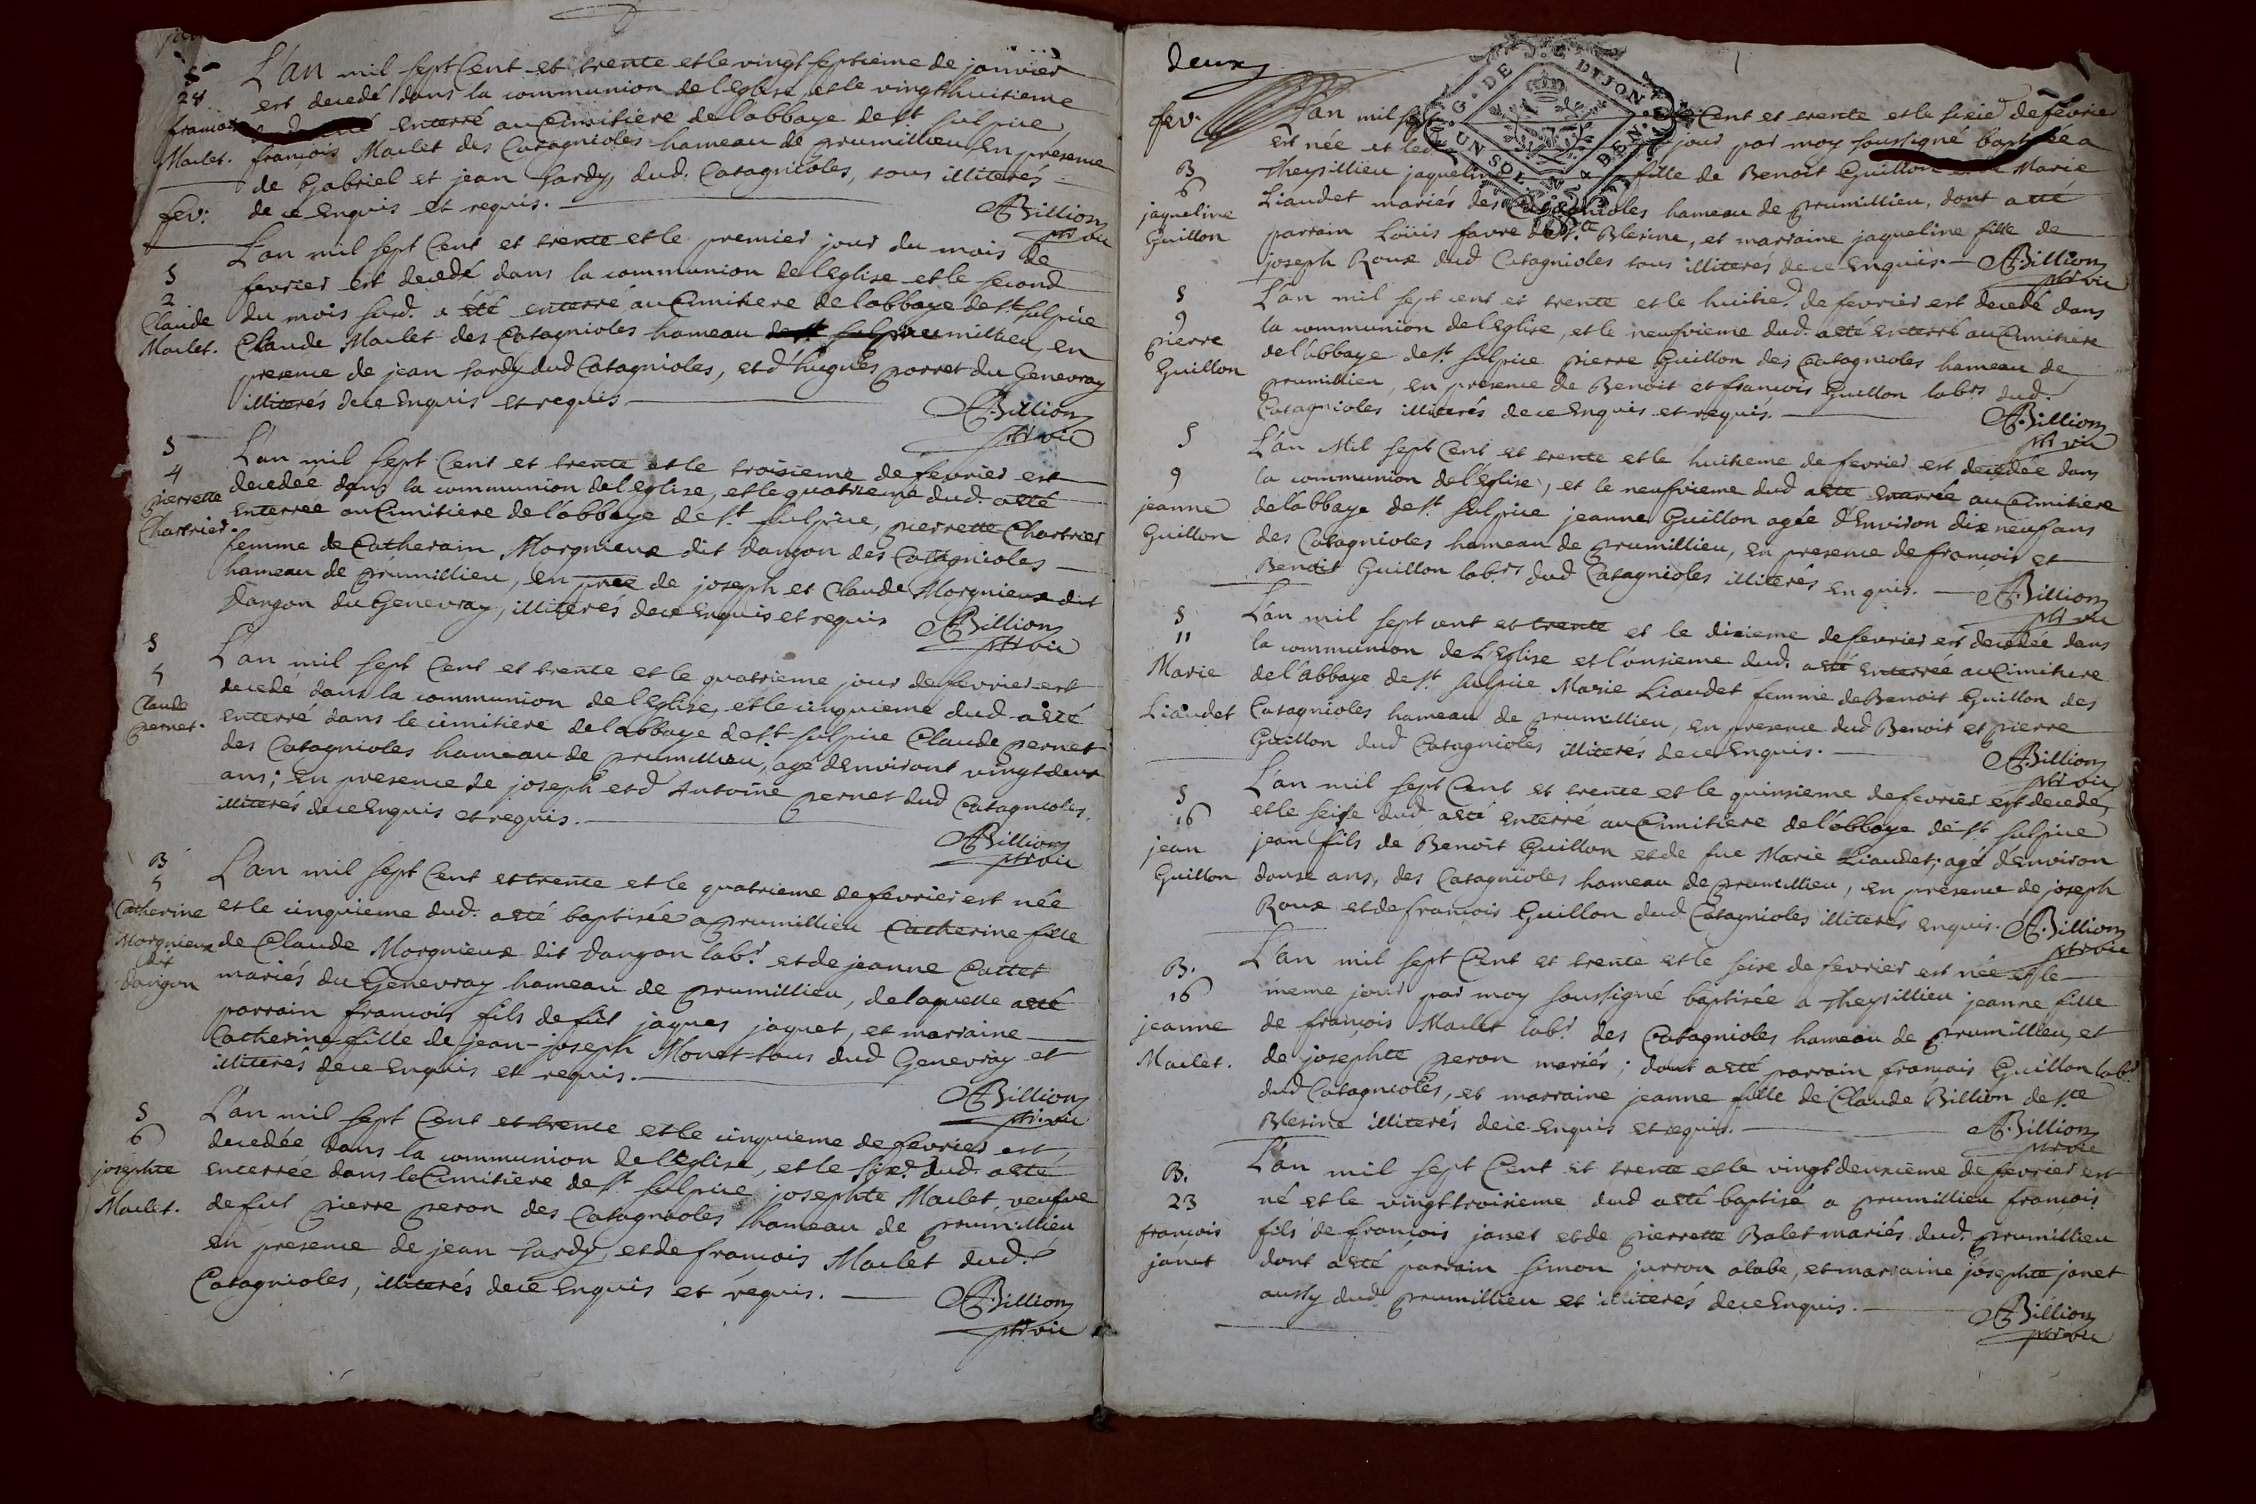 S
28
francois
Maclet.
L'an mil sept Cent et trente et le vingt septieme de janvier
est decedé dans la communion de l'eglise, et le vingt huitieme
enterré au Cimitiere de l'abbaye de st sulpice
françois Maclet des Catagnioles hameau de prumillieu, en presence
de Gabriel et jean hardy, dud. Catagnioles, tous illiterés
de ce Enquis et requis.
Billion
ptr vic
fev:
S
2
Claude
Maclet.
L'an mil sept Cent et trente et le premier jour du mois de
fevrier est decedé dans la communion de l'eglise et le second
du mois susd. a été enterré au Cimitiere de l'abbaye de st sulpice
Claude Maclet des Catagnioles hameau de prumillieu, en
presence de jean hardy dud Catagnioles, et d'hugues porret du Genevray
illiterés de ce Enquis et requis
Billion
ptr vic
S
4
pierrette
Chartrier.
L'an mil sept Cent et trente et le troisieme de fevrier est
decedée dans la communion de l'eglise, et le quatrieme dud. a eté
enterrée au Cimitiere de l'abbaye de st. sulpice, pierrette Chartrier
femme de Catherain Morgnieux dit dangon des Catagnioles
hameau de prumillieu, en pnce de joseph et Claude Morgnieux dit
dangon du Genevray, illiterés de ce Enquis et requis
Billion
ptr vic
S
5
Claude
pernet.
L'an mil sept Cent et trente et le quatrieme jour de fevrier est
decedé dans la communion de l'eglise, et le cinquieme dud. a eté
enterré dans le cimitiere de l'abbaye de st. sulpice Claude pernet
des Catagnioles hameau de prumillieu, agé d'Environt vingt deux
ans; en presence de joseph et d'Antoine pernet dud Catagnioles,
illiterés de ce Enquis et requis.
Billion
ptr vic
B
5
Catherine
Morgnieux
dit
dangon
L'an mil sept Cent et trente et le quatrieme de fevrier est née
et le cinquieme dud. a eté baptisée a prumillieu Catherine fille
de Claude Morgnieux dit dangon labr. et de jeanne Cattet
mariés du Genevray hameau de prumillieu, de laquelle a eté
parrain francois fils de fut jaques jaquet, et marraine
Catherine fille de jean-joseph Monet tous dud Genevray et
illiterés de ce Enquis et requis.
Billion
ptr vic
S
6
josephte
Maclet.
L'an mil sept Cent et trente et le cinquieme de fevrier est
decedée dans la communion de l'Eglise, et le sixe. dud. a eté
enterrée dans le Cimitiere de st. sulpice josephte Maclet, veufve
de fut pierre peron des Catagnioles hameau de prumillieu
en presence de jean hardy, et de francois Maclet dud.
Catagnioles, illiterés de ce Enquis et requis.
Billion
ptr vic
deux
G. DE DIJON
UN SOL
4 DEN.
fev:
B
6
jaqueline
Guillon
L'an mil sept Cent et trente et le sixie. de fevrie
est née et led jour par moy soussigné baptisée a
Theysillieu jaqueline fille de Benoit Guillon Marie
Liaudet mariés des Catagnioles hameau de prumillieu, dont a eté
parrain Loüis favre de ste. Blesine, et marraine jaqueline fille de
joseph Roux dud Catagnioles tous illiterés de ce Enquis.
Billion
ptr vic
S
9
pierre
Guillon
L'an mil sept cent et trente et le huitie. de fevrier est decedé dans
la communion de l'Eglise, et le neufvieme dud. a eté enterré au Cimitiere
de l'abbaye de st. sulpice pierre Guillon des Catagnioles hameau de
prumillieu, en presence de Benoit et francois Guillon labrs. dud.
Catagnioles illiterés de ce Enquis et requis.
Billion
ptr vic
S
9
jeanne
Guillon
L'an Mil sept Cent et trente et le huitieme de fevrier est decedée dans
la communion de l'église, et le neufvieme dud a eté enterrée au Cimitiere
de l'abbaye de st. sulpice jeanne Guillon agée d'Environ dix neuf ans
des Catagnioles hameau de prumillieu, en presence de francois et
Benoit Guillon labrs. dud Catagnioles, illiterés en quis.
Billion
ptr vic
S
11
Marie
Liaudet
L'an mil sept cent et trente et le dixieme de fevrier est decedée dans
la communion de L'Eglise et l'onsieme dud. a eté enterrée au Cimitiere
de l'abbaye de st. sulpice Marie Liaudet femme de Benoit Guillon des
Catagnioles hameau de prumillieu, en presence dud Benoit et pierre
Guillon dud Catagnioles illiterés de ce Enquis.
Billion
ptr vic
S
16
jean
Guillon
L'an mil sept Cent et trente et le quinsieme de fevrier est decedé,
et le seise dud. a eté enterré au Cimitiere de l'abbaye de st. sulpice
jean fils de Benoit Guillon et de fue Marie Liaudet; agé d'Environ
douse ans, des Catagnioles hameau de prumillieu, en presence de joseph
Roux et de francois Guillon dud Catagnioles illiterés Enquis.
Billion
ptr vic
B.
16
jeanne
Maclet.
L'an mil sept Cent et trente et le seise de fevrier est née et le
meme jour par moy soussigné baptisée a Theysillieu jeanne fille
de francois Maclet labr. des Catagnioles hameau de prumillieu, et
de josephte peron mariés; dont a eté parrain francois Guillon labr
dud Catagnioles, et marraine jeanne fille de Claude Billion de ste
Blesine illiterés de ce Enquis et requis.
Billion
ptr vic
B.
23
francois
janet
L'an mil sept Cent et trente et le vingt deuxieme de fevrier est
né et le vingt troisieme dud a eté baptisé a prumillieu francois
fils de francois janet et de pierrette Balet mariés dud. prumillieu
dont a eté parrain simon jurron alabe, et marraine josephte janet
aussy dud prumillieu et illiterés de ce Enquis.
Billion
ptr vic